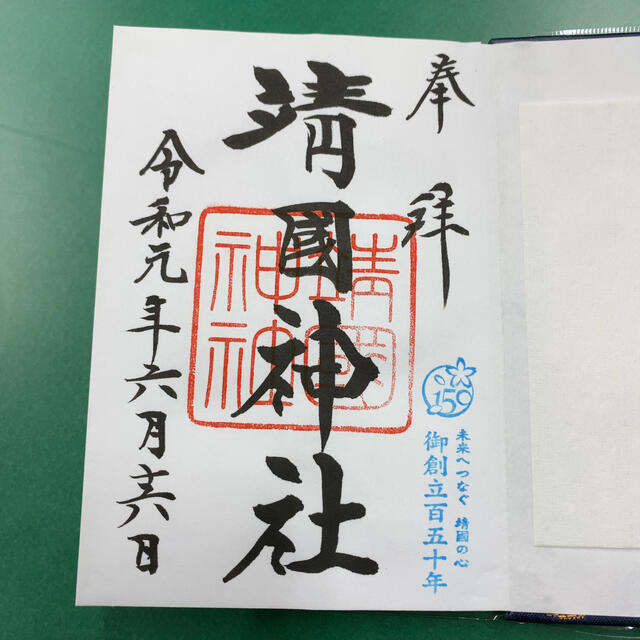 奉拜
靖國神社
靖國神社
令和元年六月十六日
150
未来へつなぐ 靖國の心
御創立百五十年